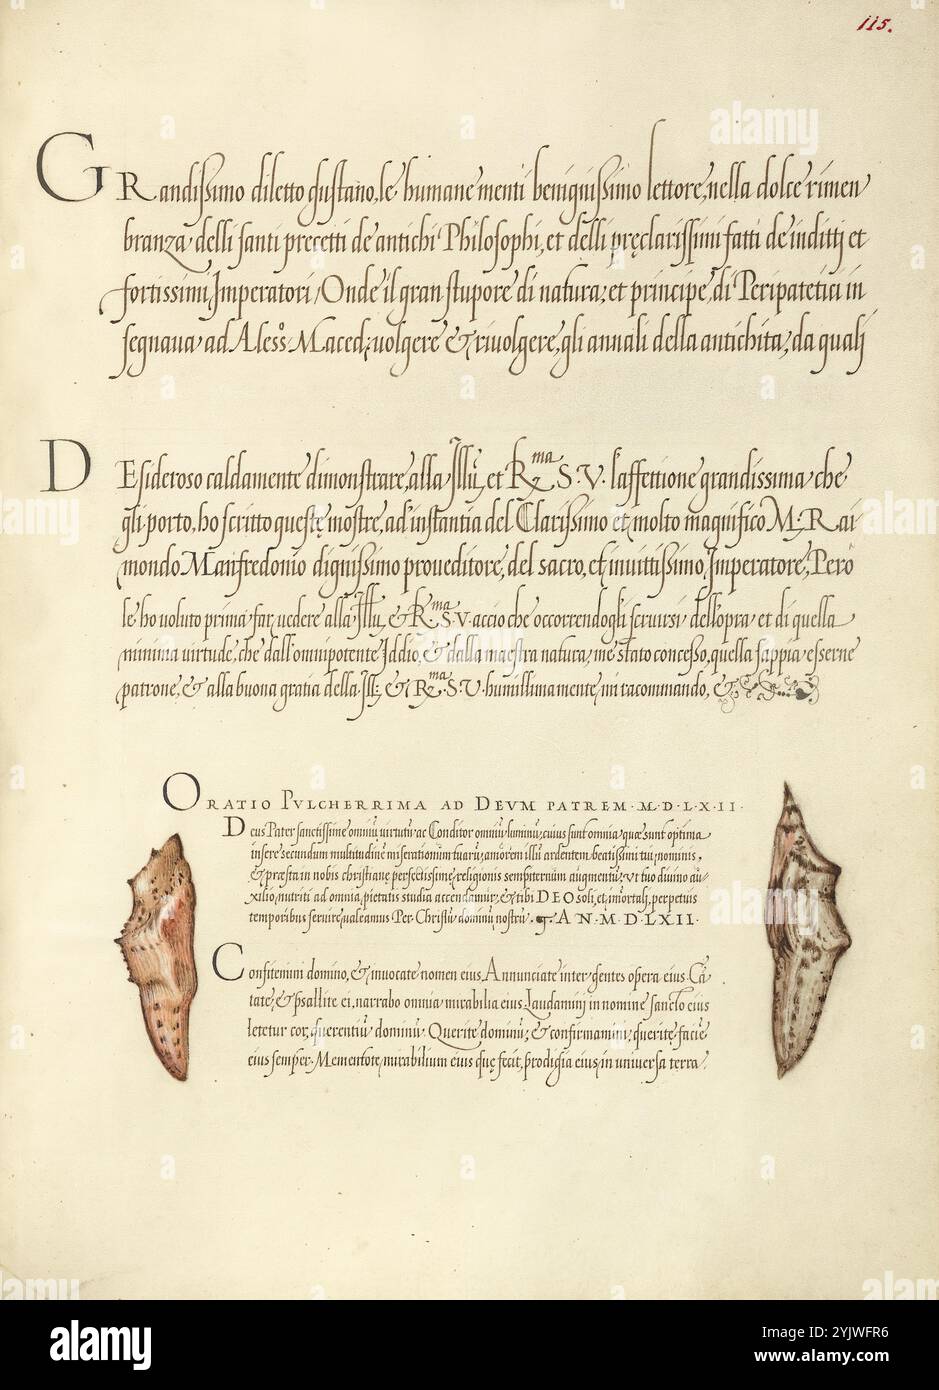 115.
GRandissimo diletto gustano, le humane menti benignissimo lettore, nella dolce rimen
branza delli santi precetti de antichi Philosophi, et delli pręclarissimi fatti de inditti et
fortissimi Imperatori, Onde il gran stupore di natura, et principe, di Peripatetici in
segnaua ad Aless.º Maced, uolgere & riuolgere, gli annali della antichita, da quali
DEsideroso caldamente dimonstrare, alla Illũ, et R.ma S. V. l'affettione grandissima che
gli porto, ho scritto questę mostre, ad instantia del Clarissimo et molto magnifico M. Rai
mondo Manfredonio dignissimo proueditore, del sacro, et inuittissimo, Imperatore, Pero
le ho voluto prima far, uedere alla Illũ, & R.ma S. V. accio che occorrendogli seruirsi dell'opra et di quella
minima virtude, che dall'omnipotente Iddio, & dalla maestra natura, me stato concesso, quella sappia esserne
patrone, & alla buona gratia della Ill, & R.ma S. V. humillimamente, mi racommando, &
ORATIO PVLCHERRIMA AD DEVM PATREM. M.D.L.X.II.
Deus Pater sanctissime omniũ uirtutũ ac Conditor omniũ luminũ, cuius sunt omnia quæ sunt optima
insere secundum multitudinẽ miserationum tuarũ, amorem illũ ardentem beatissimi tui nominis,
& præsta in nobis christianę perfectissimę religionis sempiternum augmentũ, vt tuo diuino au-
xilio, nutriti ad omnia, pietatis studia accendamur, & tibi DEO soli, et imortali, perpetuis
temporibus seruire ualeamus Per Christũ dominũ nostrũ. AN. M.D.LXII.
Confitemini domino, & inuocate nomen eius, Annunciate inter gentes opera eius. Cã
tate, & psallite ei, narrabo omnia mirabilia eius. Laudamini in nomine sancto eius
letetur cor, querentiũ dominũ. Querite dominũ, & confirmamini, querite, faciẽ
eius semper. Mementote, mirabilium eius quę fecit, prodigia eius, in uniuersa terra.
alamy
a
alamy
Image ID: 2YJWFR6
www.alamy.com